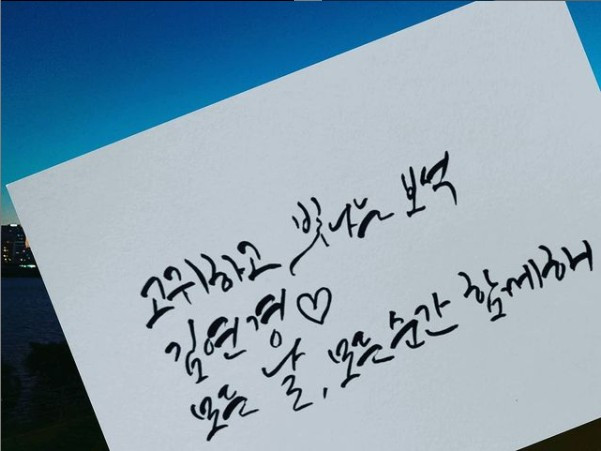 고귀하고 빛나는 보석
김연경♡
모든 날, 모든 순간 함께해